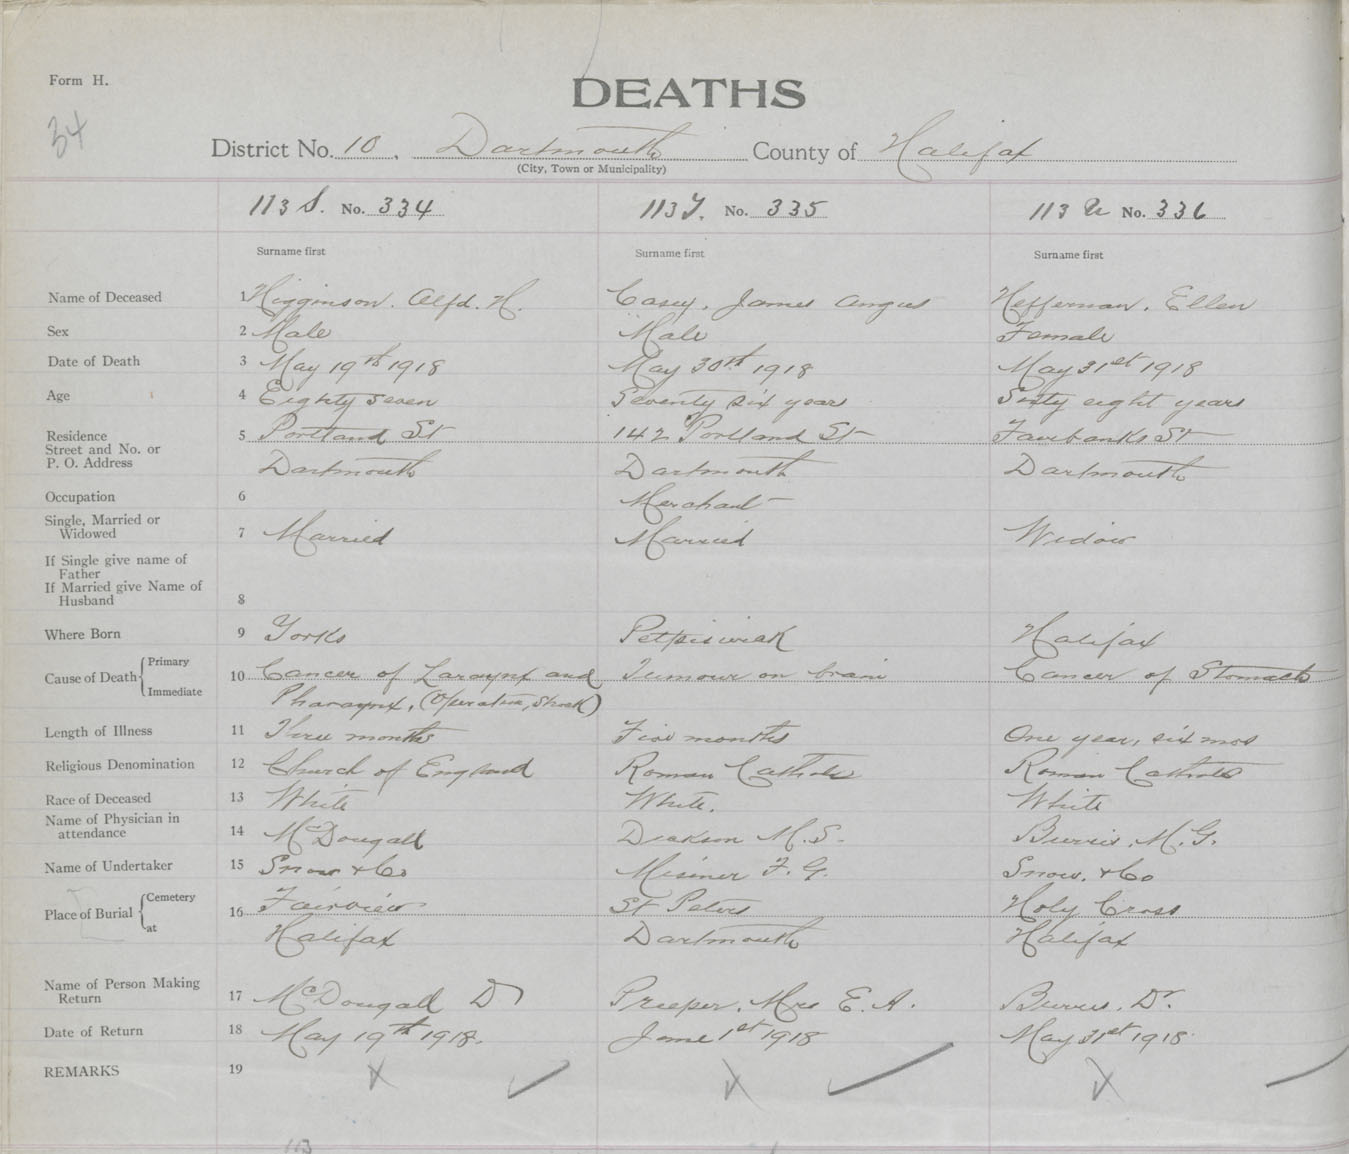 Form H.
DEATHS
34
District No. 10, Dartmouth County of Halifax
(City, Town or Municipality)
113 S. No. 334 113 T. No. 335 113 U No. 336
Surname first Surname first Surname first
Name of Deceased 1 Higginson. Alfd. H. Casey, James Angus Heffernan. Ellen
Sex 2 Male Male Female
Date of Death 3 May 19th 1918 May 30th 1918 May 31st 1918
Age 4 Eighty seven Seventy six years Sixty eight years
Residence 5 Portland St 142 Portland St Fairbanks St
Street and No. or
P. O. Address Dartmouth Dartmouth Dartmouth
Occupation 6 Merchant
Single, Married or
Widowed 7 Married Married Widow
If Single give name of
Father
If Married give Name of
Husband 8
Where Born 9 Yorks Petpiswick Halifax
Cause of Death Primary
Immediate 10 Cancer of Larynx and Tumour on brain Cancer of Stomach
Pharynx, (Operation, Shock)
Length of Illness 11 Three months Five months One year, six mos
Religious Denomination 12 Church of England Roman Catholic Roman Catholic
Race of Deceased 13 White White. White
Name of Physician in
attendance 14 McDougall Dickson M. S. Burris, M. G.
Name of Undertaker 15 Snow & Co Misener F. G. Snow. & Co
Place of Burial Cemetery 16 Fairview St Peters Holy Cross
at Halifax Dartmouth Halifax
Name of Person Making
Return 17 McDougall D Preeper, Mrs E. A. Burris, Dr.
Date of Return 18 May 19th 1918. June 1st 1918 May 31st 1918
REMARKS 19 x x x
113